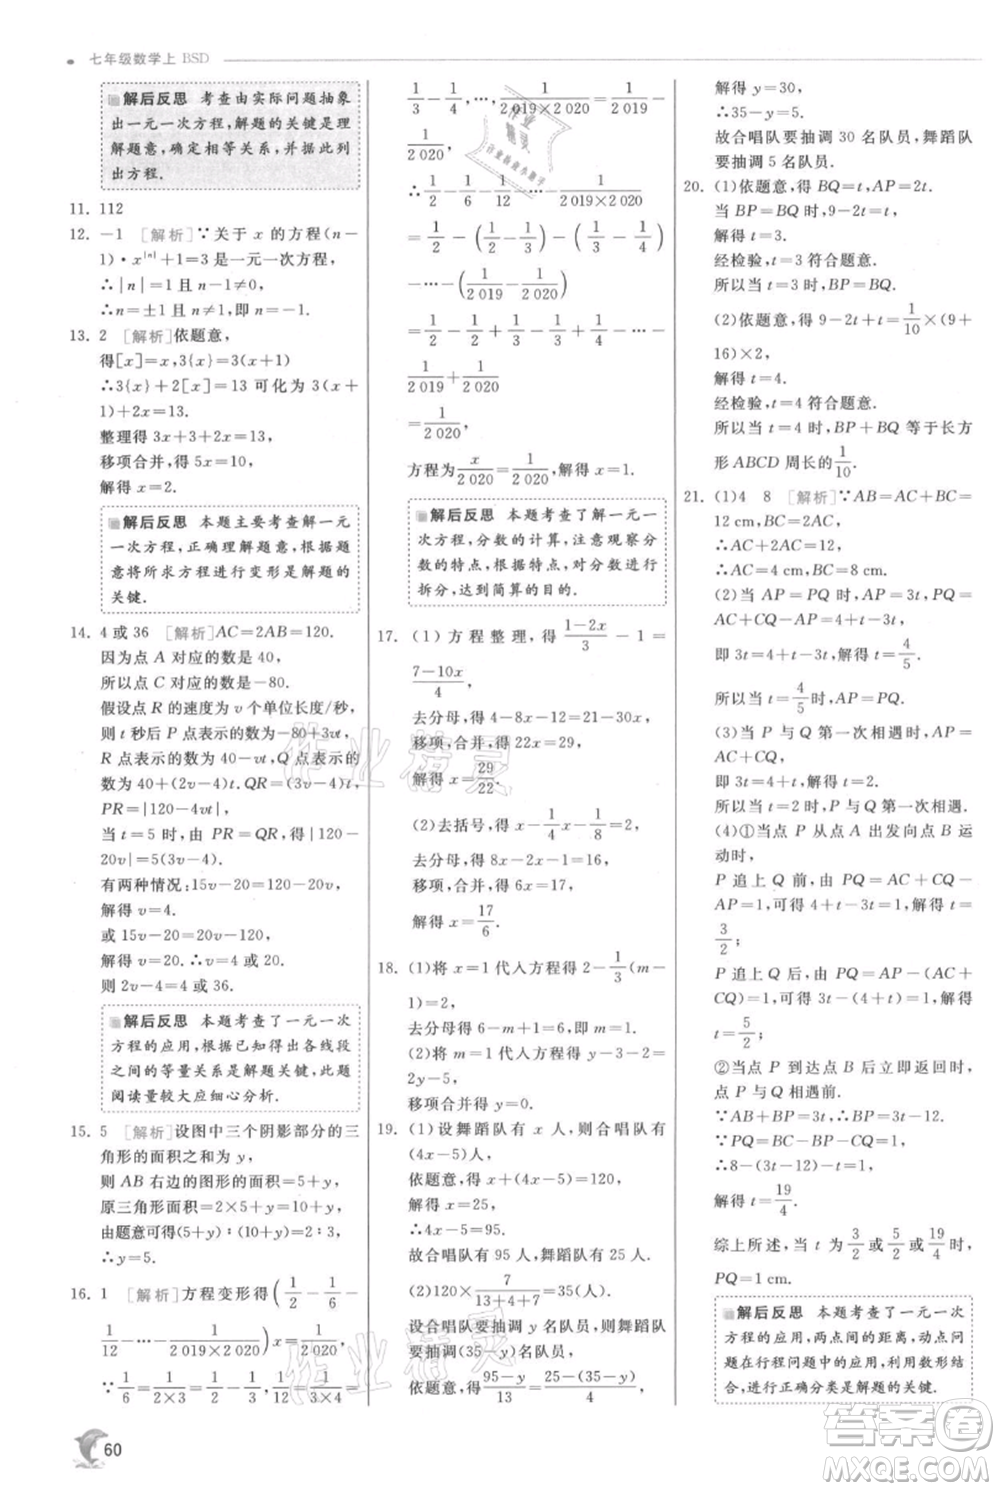 七年级数学上 BSD
解后反思 考查由实际问题抽象
出一元一次方程,解题的关键是理
解题意,确定相等关系,并据此列
出方程.
11. 112
12. −1 [解析]∵关于 x 的方程(n−
1)·x^{|n|}+1=3 是一元一次方程,
∴|n|=1 且 n−1≠0,
∴n=±1 且 n≠1,即 n=−1.
13. 2 [解析]依题意,
得[x]=x,3{x}=3(x+1)
∴3{x}+2[x]=13 可化为 3(x+
1)+2x=13.
整理得 3x+3+2x=13,
移项合并,得 5x=10,
解得 x=2.
解后反思 本题主要考查解一元
一次方程,正确理解题意,根据题
意将所求方程进行变形是解题的
关键.
14. 4 或 36 [解析]AC=2AB=120.
因为点 A 对应的数是 40,
所以点 C 对应的数是−80.
假设点 R 的速度为 v 个单位长度/秒,
则 t 秒后 P 点表示的数为−80+3vt,
R 点表示的数为 40+vt,Q 点表示的
数为 40+(2v−4)t.
PR=|120−4vt|
当 t=5 时,由 PR=QR,得|120−
20v|=5(3v−4).
有两种情况:15v−20=120−20v,
解得 v=4.
或 15v−20=20v−120,
解得 v=20.∴v=4 或 v=20.
则 2v−4=4 或 36.
解后反思 本题考查了一元一次
方程的应用,根据已知得出各线段
之间的等量关系是解题关键,此题
阅读量较大应细心分析.
15. 5 [解析]设图中三个阴影部分的三
角形的面积之和为 y,
则 AB 右边的图形的面积=5+y,
原三角形面积=2×5+y=10+y,
由题意可得(5+y)∶(10+y)=2∶3,
∴y=5.
16. 1 [解析]方程变形得(1/2−1/6−
1/12−…−1/(2 019×2 020))x=1/2 020,
∵1/6=1/(2×3)=1/2−1/3,1/12=1/(3×4)=
1/3−1/4,…,1/(2 019×2 020)=1/2 019−
1/2 020,
∴1/2−1/6−1/12−…−1/(2 019×2 020)
=1/2−(1/2−1/3)−(1/3−1/4)
−…−(1/2 019−1/2 020)
=1/2−1/2+1/3−1/3+1/4−…−
1/2 019+1/2 020
=1/2 020.
方程为x/2 020=1/2 020,解得 x=1.
解后反思 本题考查了解一元一
次方程,分数的计算,注意观察分
数的特点,根据特点,对分数进行
拆分,达到简算的目的.
17. (1)方程整理,得(1−2x)/3−1=
(7−10x)/4,
去分母,得 4−8x−12=21−30x,
移项,合并得 22x=29,
解得 x=29/22.
(2)去括号,得 x−1/4x−1/8=2,
去分母,得 8x−2x−1=16,
移项,合并,得 6x=17,
解得 x=17/6.
18. (1)将 x=1 代入方程得 2−1/3(m−
1)=2.
去分母得 6−m+1=6,解得 m=1.
(2)将 m=1 代入方程得 y−3−2=
2y−5,
移项合并得 y=0.
19. (1)设舞蹈队有 x 人,则合唱队有
(4x−5)人,
依题意,得 x+4x−5=120,
解得 x=25,
∴4x−5=95.
故合唱队有 95 人,舞蹈队有 25 人.
(2)120×7/(13+4+7)=35(人).
设合唱队要抽调 y 名队员,则舞蹈队
要抽调(35−y)名队员,
依题意,得(95−y)/13=(25−(35−y))/4,
解得 y=30,
∴35−y=5.
故合唱队要抽调 30 名队员,舞蹈队
要抽调 5 名队员.
20. (1)依题意,得 BQ=t,AP=2t.
当 BP=BQ 时,9−2t=t,
解得 t=3.
经检验,t=3 符合题意.
所以当 t=3 时,BP=BQ.
(2)依题意,得 9−2t+t=1/10×(9+
16)×2,
解得 t=4.
经检验,t=4 符合题意.
所以当 t=4 时,BP+BQ 等于长方
形 ABCD 周长的1/10.
21. (1)4 8 [解析]∵AB=AC+BC=
12 cm,BC=2AC,
∴AC+2AC=12,
∴AC=4 cm,BC=8 cm.
(2)当 AP=PQ 时,AP=3t,PQ=
AC+CQ−AP=4+t−3t,
即 3t=4+t−3t,解得 t=4/5.
所以当 t=4/5时,AP=PQ.
(3)当 P 与 Q 第一次相遇时,AP=
AC+CQ,
即 3t=4+t,解得 t=2.
所以当 t=2 时,P 与 Q 第一次相遇.
(4)①当点 P 从点 A 出发向点 B 运
动时,
P 追上 Q 前,由 AC+CQ−AP=
PQ=1,可得 4+t−3t=1,解得 t=
3/2;
P 追上 Q 后,由 AP−(AC+
CQ)=1,可得 3t−(4+t)=1,解得
t=5/2;
②当点 P 到达点 B 立即返回时,
点 P 与 Q 相遇前.
∵AB+BP=3t,∴BP=3t−12.
∵PQ=BC−BP−CQ=1,
∴8−(3t−12)−t=1,
解得 t=19/4.
综上所述,当 t 为3/2或5/2或19/4时,
PQ=1 cm.
解后反思 本题考查了一元一次
方程的应用,两点间的距离,动点问
题在行程问题中的应用,利用数形结
合,并正确分类是解题的关键.
60
作业精灵
作业精灵
答案圈
MXQE.COM